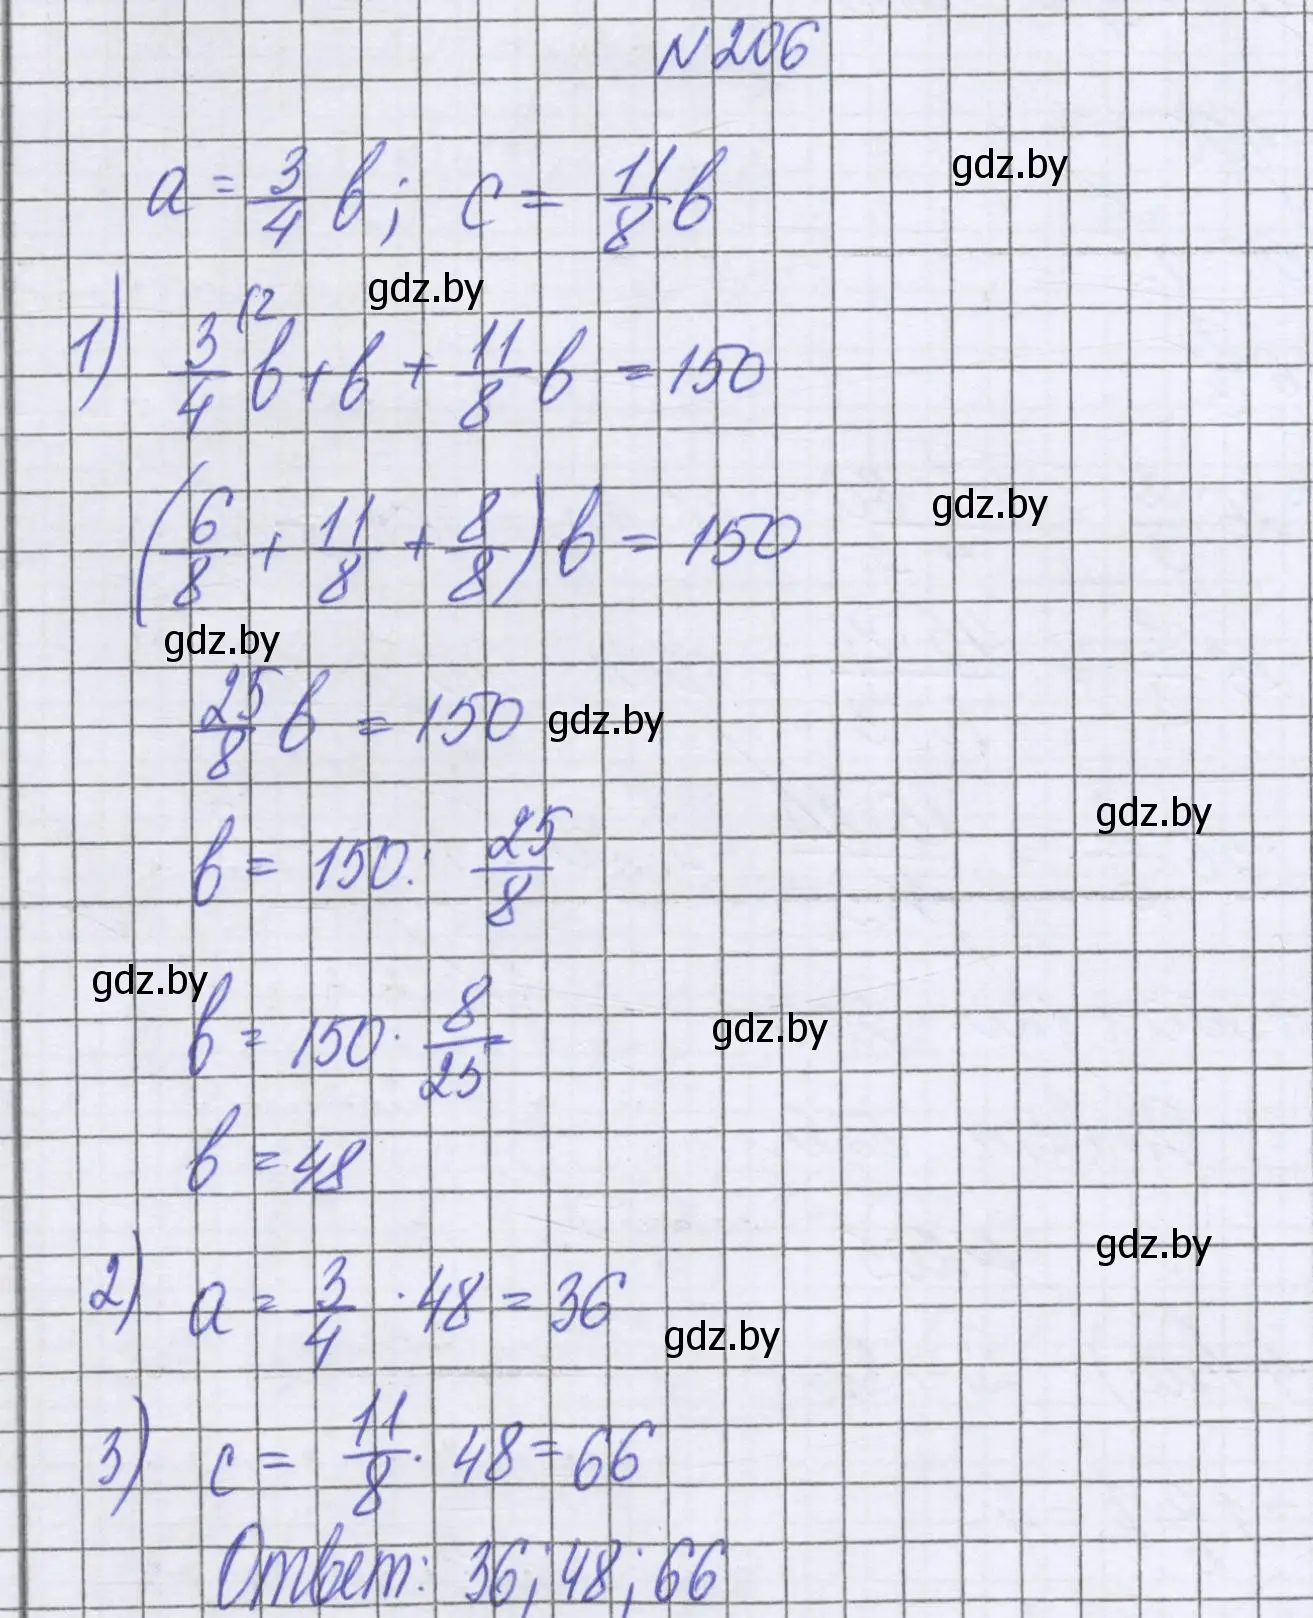 N206
a = 3/4 b; c = 11/8 b
gdz.by
gdz.by
1) 3/4 (2 b + b + 11/8 b = 150
(6/8 + 11/8 + 8/8) b = 150
gdz.by
gdz.by
25/8 b = 150
gdz.by
b = 150 : 25/8
gdz.by
gdz.by
b = 150 · 8/25
gdz.by
b = 48
gdz.by
2) a = 3/4 · 48 = 36
gdz.by
3) c = 11/8 · 48 = 66
Ответ: 36; 48; 66